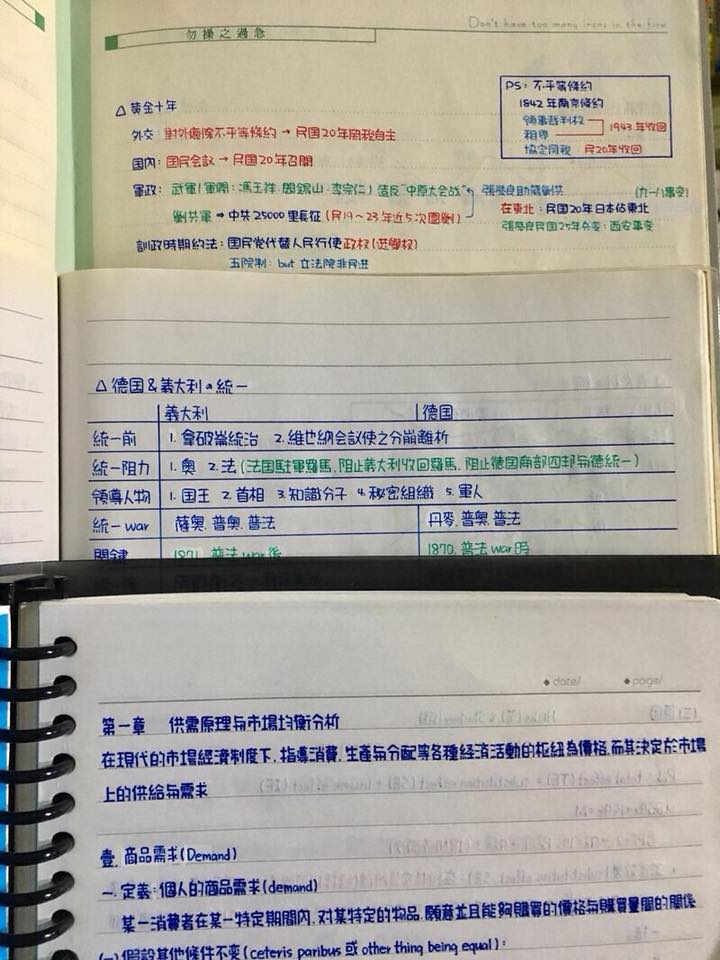 Don't have too many irons in the fire
勿操之過急
△黃金十年
PS: 不平等條約
1842年南京條約
領事裁判权
租界
1943年收回
協定関稅 民20年收回
外交: 對外廢除不平等條約 → 民国20年関稅自主
国內: 国民会議 → 民国20年召開
軍政: 武軍(軍閥:馮玉祥.閻錫山.李宗仁)造反"中原大会战" 張學良助蔣剿共 (九一八事变)
剿共軍 ⇒ 中共25000里長征(民19~23年近5次圍剿) 在東北: 民国20年日本佔東北
張學良民国25年兵变: 西安事变
訓政時期約法: 国民党代替人民行使政权(选舉权)
五院制: but 立法院非民选
△德国&義大利の統一
義大利 德国
統一前 1. 拿破崙統治 2. 維也納会議使之分崩離析
統一阻力 1. 奧 2. 法(法国駐軍羅馬, 阻止義大利收回羅馬, 阻止德国南部四邦与德統一)
領導人物 1. 国王 2. 首相 3. 知識分子 4. 秘密組織 5. 軍人
統一war 薩奧. 普奧. 普法 丹麥. 普奧. 普法
関鍵 1871. 普法war後 1870. 普法war時
◆date/ ◆page/
第一章 供需原理与市場均衡分析
在現代的市場經濟制度下, 指導消費, 生產与分配等各種経済活動的樞紐為價格, 而其決定於市場
上的供給与需求
壹. 商品需求(Demand)
一. 定義: 個人的商品需求(demand)
某一消費者在某一特定期間內, 對某特定的物品, 願意並且能夠購買的價格与購買量間的関係
(一)假設其他條件不変(ceteris paribus 或 other thing being equal):